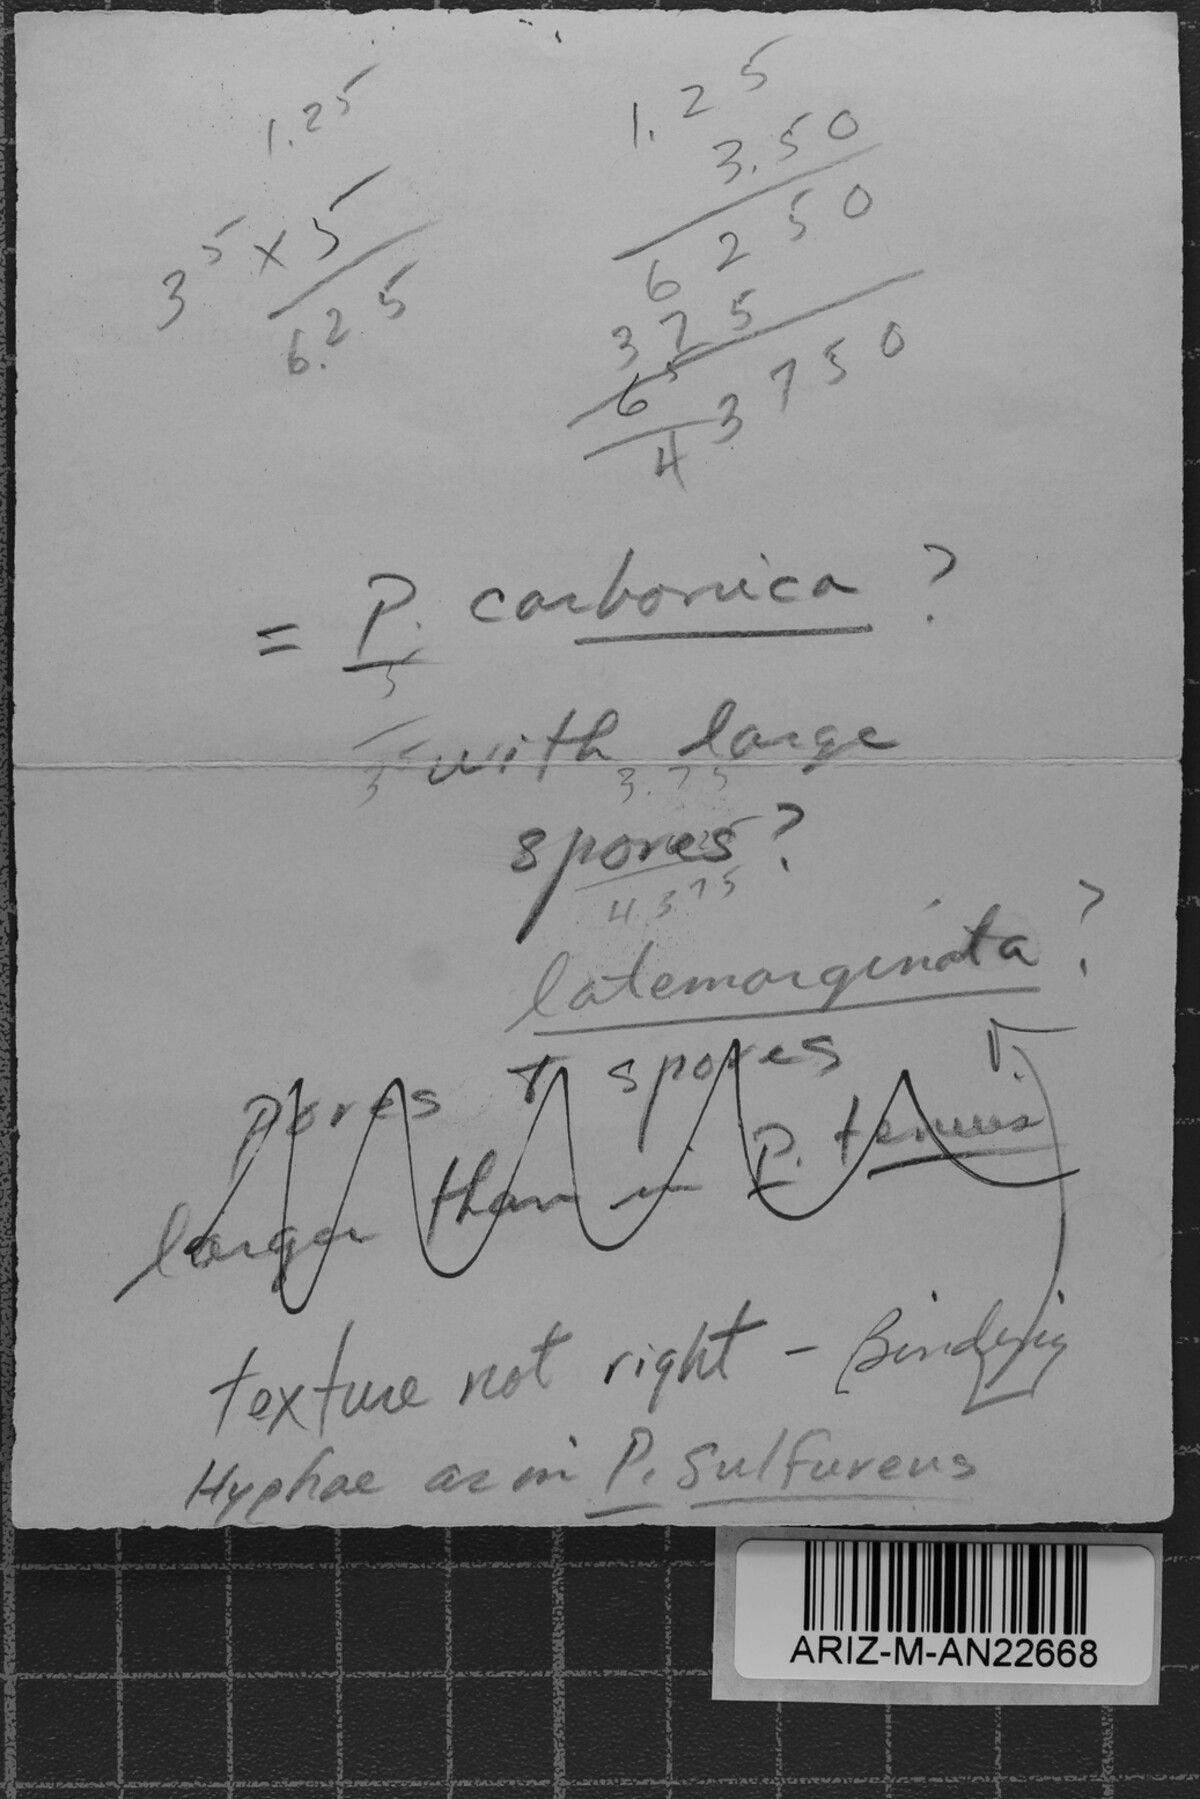 1.25
3⁵ x 5
6.25
1.25
3.50
6250
375
6⁵
43750
= P. carbonica ?
5
3⁵ with large
3.75
spores ?
4375
latemarginata ?
pores + spores
larger than in P. tenuis
texture not right - Binding
Hyphae as in P. sulfureus
ARIZ-M-AN22668